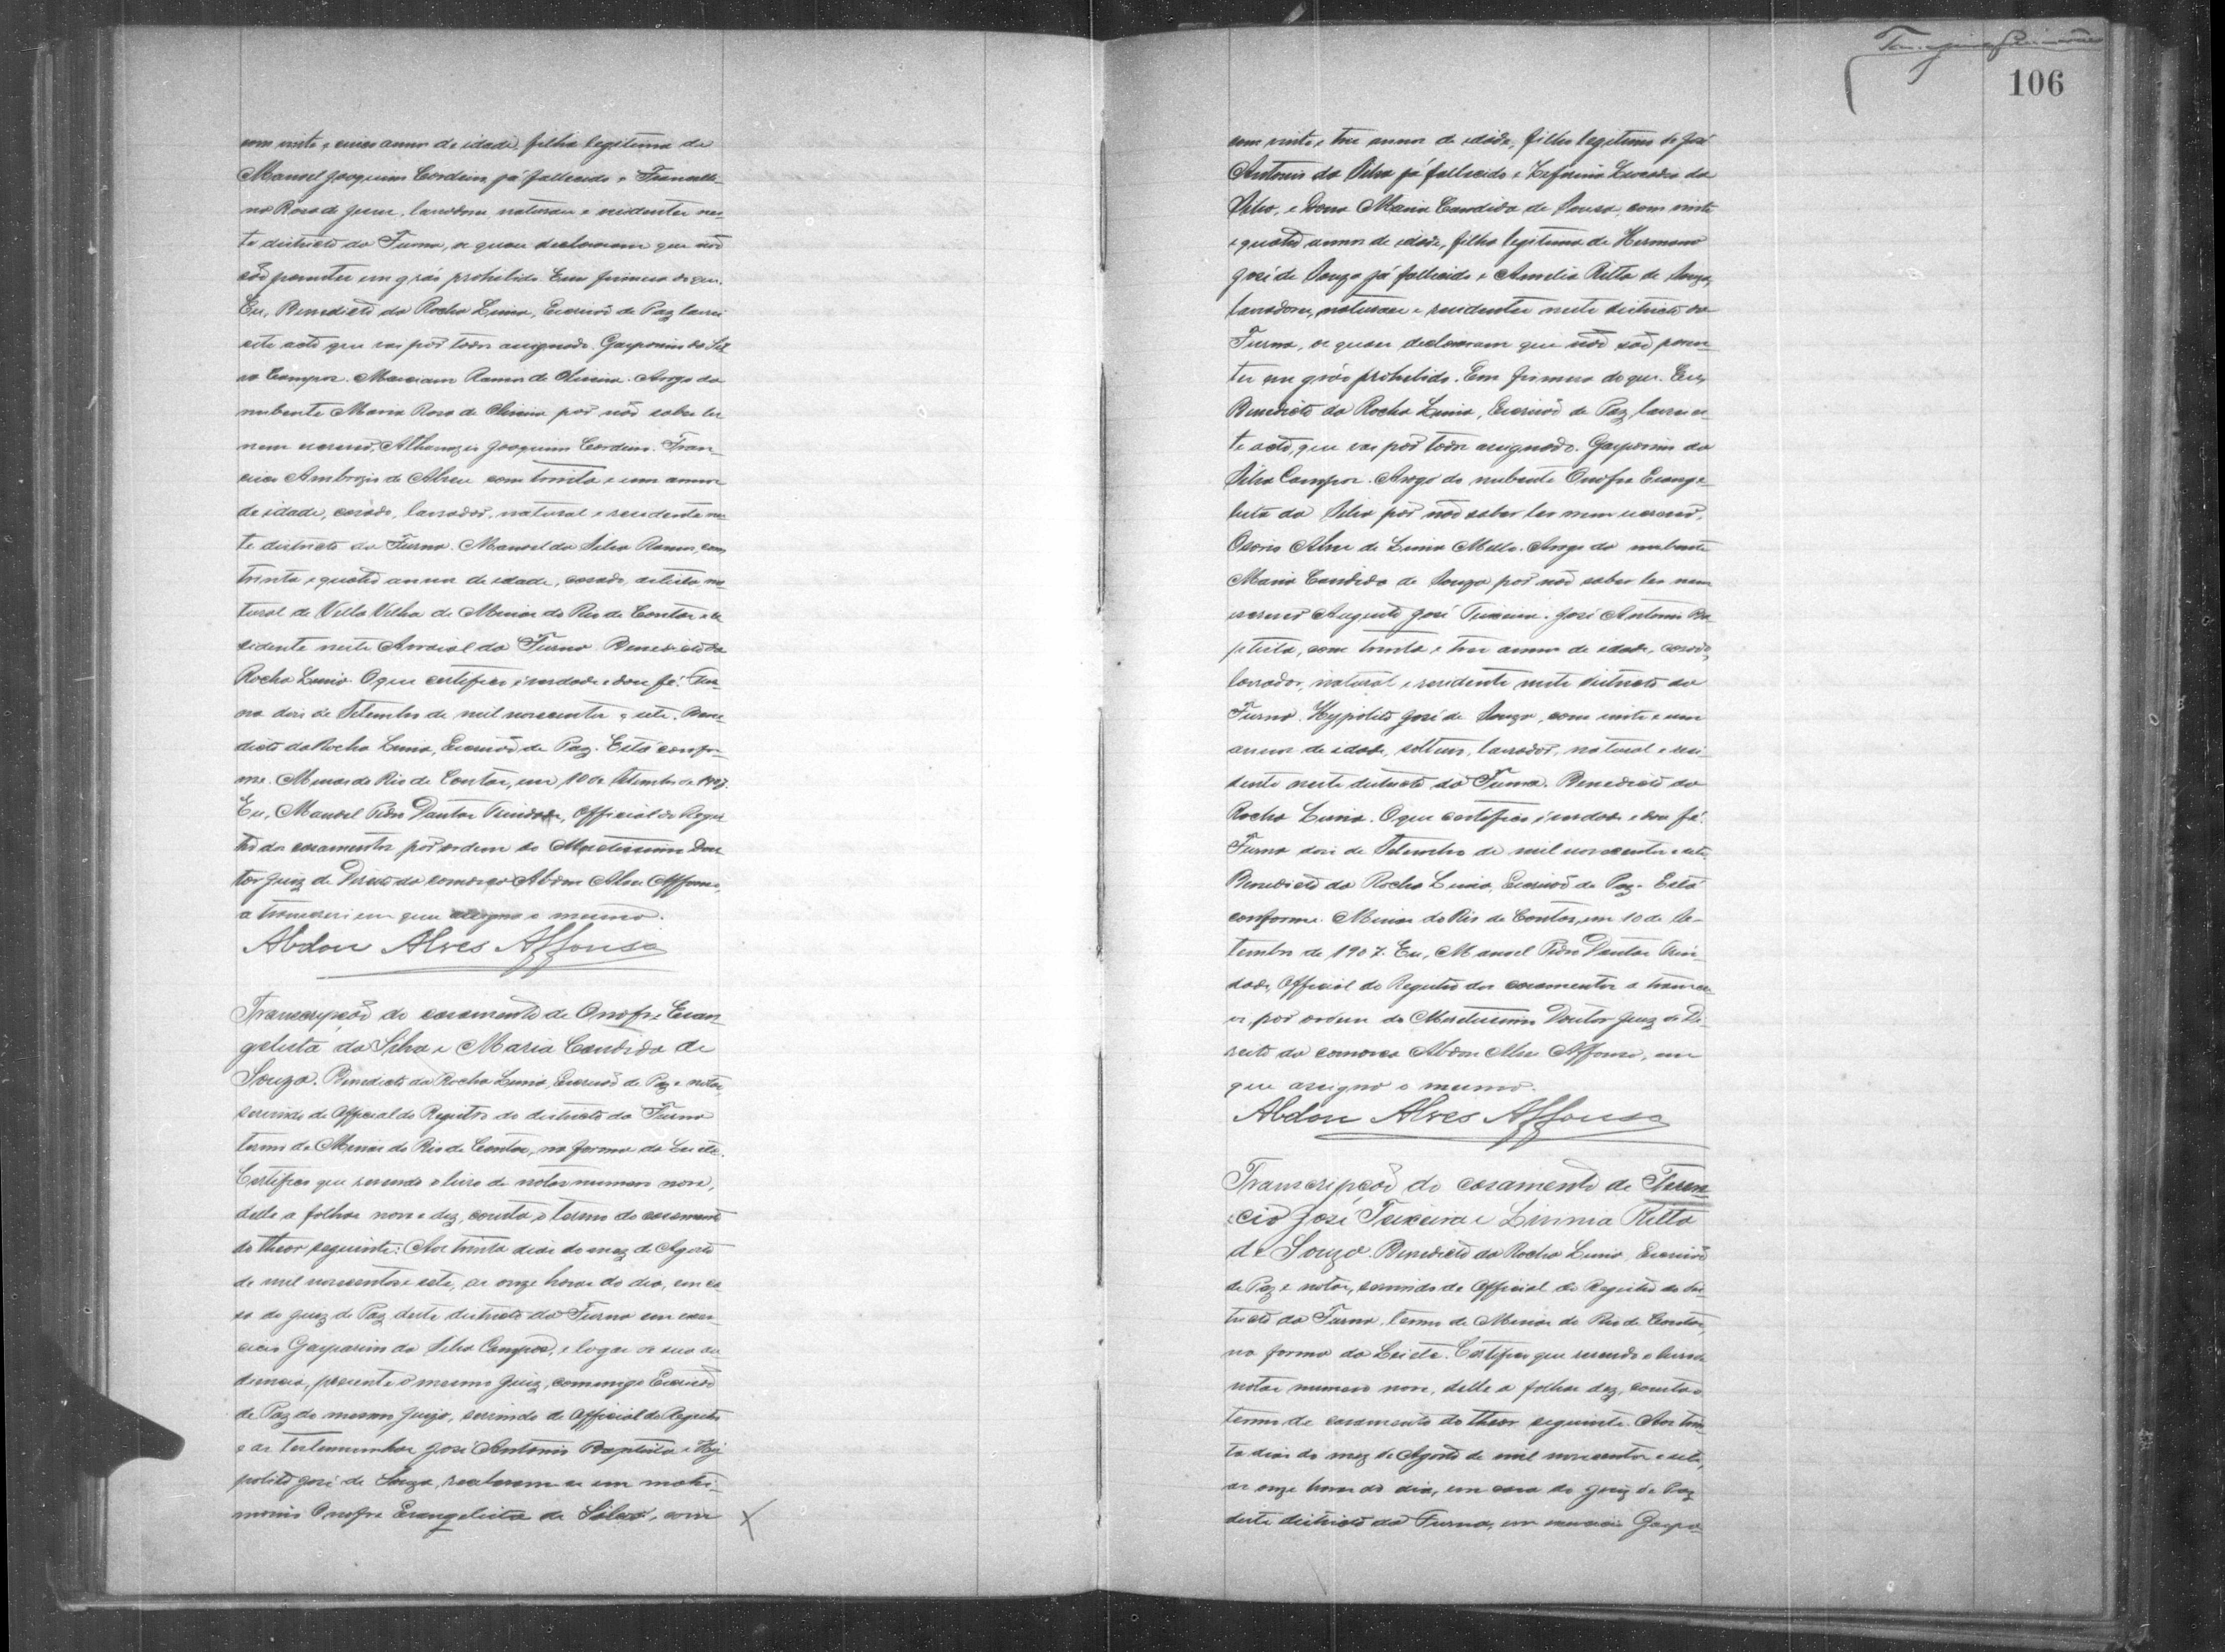 com vinte e cinco annos de idade, filha legitima de
Manoel Joaquim Cordeiro já fallecido e
na Rosa de Jesus, lavradores naturaes e residentes nes-
te districto da Furna, os quaes declararam que não
são parentes em gráo prohibido. Em firmeza do que.
Eu, Benedicto da Rocha Lima, Escrivão de Paz lavrei
este acto que vai por todos assignado. Gasparim da Sil
va Campos. Marciano Ramos de Oliveira. Arogo da
nubente Maria Rosa de Oliveira por não saber ler
nem escrever, Athanazio Joaquim Cordeiro. Fran-
cisco Ambrozio de Abreu com trinta e um annos
de idade, casado, lavrador, natural e residente nes
te districto da Furna. Manoel da Silva Ramos, com
trinta e quatro annos de idade, casado, artista na
tural de Villa Velha de Minas do Rio de Contas e re
sidente neste Arraial da Furna Benedicto da
Rocha Lima. O que certifico é verdade e dou fé. Fur-
na dois de Setembro de mil novecentos e sete. Bene-
dicto da Rocha Lima, Escrivão de Paz. Está confor-
me. Minas do Rio de Contas, em 10 de Setembro de 1907.
Eu, Manoel Pedro Dantas Trindade, Official do Regis
tro dos casamentos por ordem do Meretissimo Dou
tor Juiz de Direito da comarca Abdon Alves Affonso,
a transcrevi em que assigna o mesmo.
Abdon Alves Affonso
Transcripção do casamento de Onofre Evan
gelista da Silva e Maria Candida de
Souza. Benedicto da Rocha Lima, Escrivão de Paz e notas,
servindo de Official do Registro do districto da Furna
termo de Minas do Rio de Contas, na forma da Lei etc.
Certifico que revendo o livro de notas numero nove,
delle a folhas nove e dez, consta o termo do casamento
do theor seguinte: Aos trinta dias do mez de Agosto
de mil novecentos e sete, as onze horas do dia, em ca
sa do Juiz de Paz deste districto da Furna em exer-
cicio Gasparim da Silva Campos, e lugar de sua au
diencia, presente o mesmo Juiz, commigo Escrivão
de Paz do mesmo Juizo, servindo de Official do Registro
e as testemunhas José Antonio Baptista e Hy
polito José de Souza, receberam-se em matri-
monio Onofre Evangelista da Silva, com X
106
com vinte e tres annos de idade, filho legitimo de José
Antonio da Silva já fallecido e da
Silva, e Dona Maria Candida de Souza, com vinte
e quatro annos de idade, filha legitima de Hermano
José de Souza já fallecido e Amelia Ritta de Souza,
lavradores, naturaes e residentes neste districto da
Furna, os quaes declararam que não são paren-
tes em gráo prohibido. Em firmeza do que. Eu,
Benedicto da Rocha Lima, Escrivão de Paz, lavrei es
te acto, que vai por todos assignado. Gasparim da
Silva Campos. Arogo do nubente Onofre Evange-
lista da Silva por não saber ler nem escrever,
Osorio Alves de Lima Mello. Arogo da nubente
Maria Candida de Souza por não saber ler nem
escrever Augusto José Teixeira. José Antonio Ba
ptista, com trinta e tres annos de idade, casado,
lavrador, natural e residente neste districto da
Furna. Hypolito José de Souza, com vinte e um
annos de idade, solteiro, lavrador, natural e resi-
dente neste districto da Furna. Benedicto da
Rocha Lima. O que certifico é verdade e dou fé.
Furna dois de Setembro de mil novecentos e sete
Benedicto da Rocha Lima, Escrivão de Paz. Está
conforme. Minas do Rio de Contas, em 10 de Se-
tembro de 1907. Eu, Manoel Pedro Dantas Trin-
dade, Official do Registro dos casamentos a transcre-
vi, por ordem do Meretissimo Doutor Juiz de Di-
reito da comarca Abdon Alves Affonso, em
que assigna o mesmo.
Abdon Alves Affonso
Transcripção do casamento de Teren-
cio José Teixeira e Ritta
de Souza. Benedicto da Rocha Lima, Escrivão
de Paz e notas, servindo de Official do Registro do dis-
tricto da Furna, termo de Minas do Rio de Contas,
na forma da Lei etc. Certifico que revendo o livro de
notas numero nove, delle a folhas dez, consta o
termo de casamento do theor seguinte. Aos trin-
ta dias do mez de Agosto de mil novecentos e sete,
as onze horas do dia, em casa do Juiz de Paz
deste districto da Furna, em exercicio Gaspa-